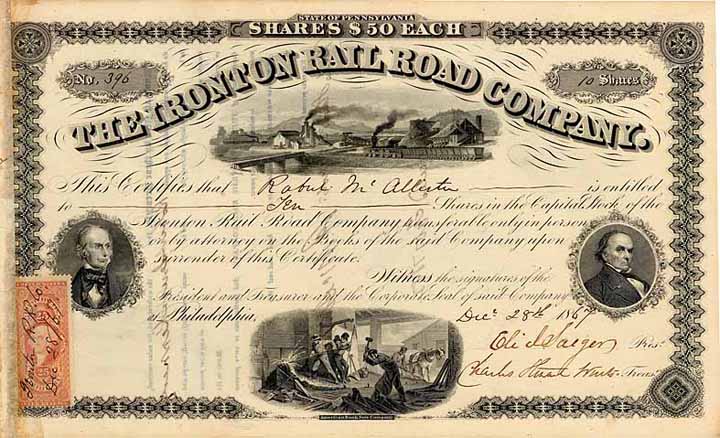 STATE OF PENNSYLVANIA
SHARES $50 EACH
No. 396
10 Shares
THE IRONTON RAIL ROAD COMPANY.
This Certifies that Robert McAllister is entitled
to Ten Shares in the Capital Stock of the
Ironton Rail Road Company transferable only in person
or by attorney on the Books of the said Company upon
surrender of this Certificate.
Witness the signatures of the
President and Treasurer and the Corporate Seal of said Company
at Philadelphia, Dec. 28th 1867
Eli J Saeger Prest.
Charles Treasr.
Ironton R.R. Co.
Dec 28/67
American Bank Note Company